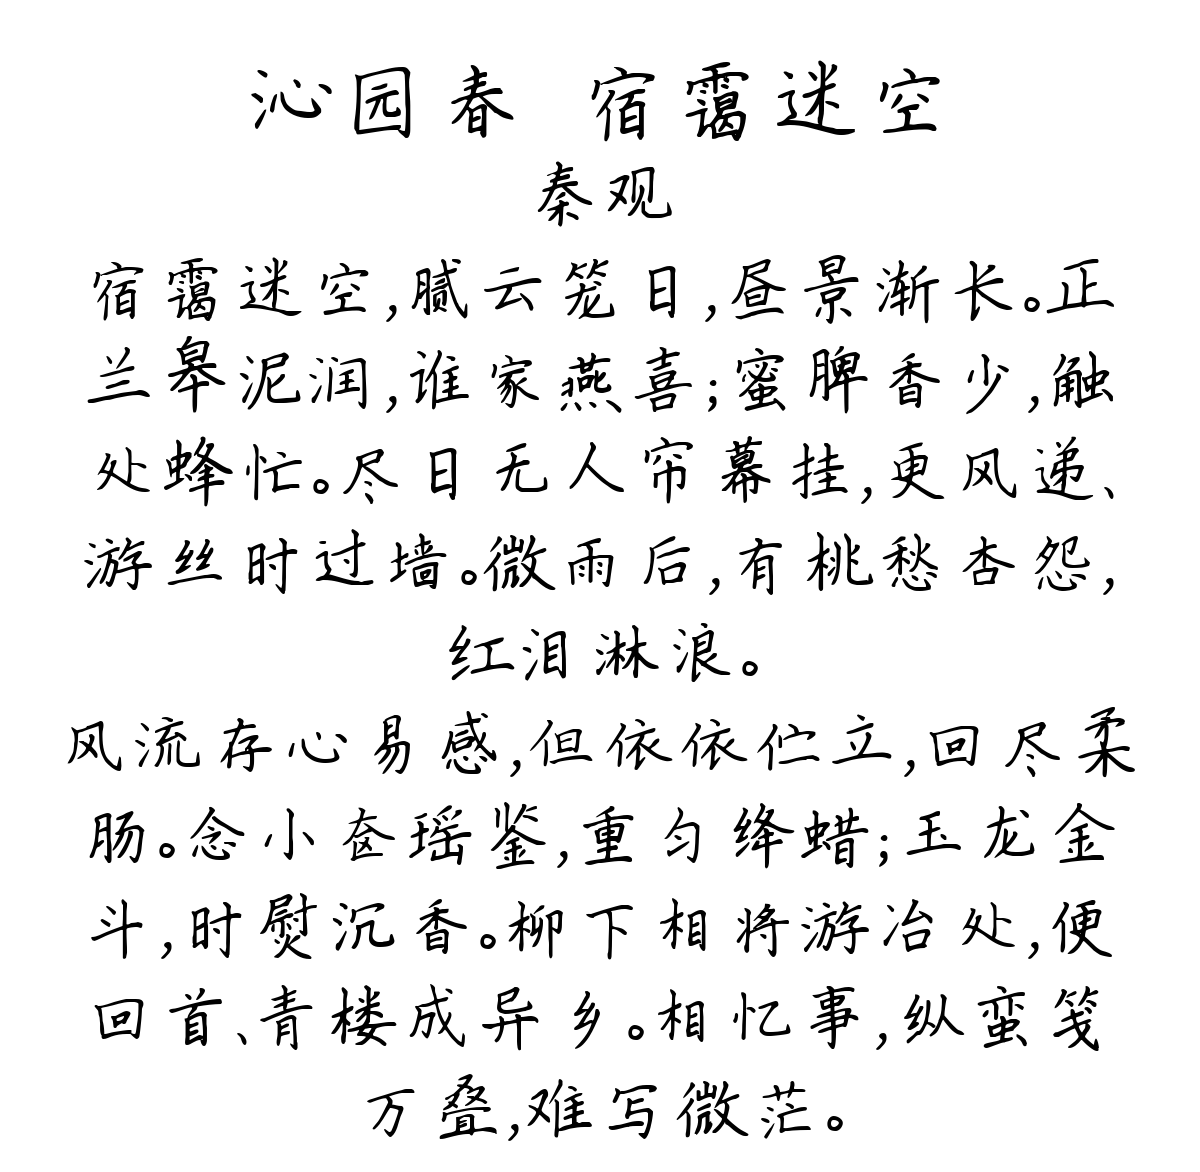 沁园春 宿霭迷空
秦观
宿霭迷空,腻云笼日,昼景渐长。正
兰皋泥润,谁家燕喜;蜜脾香少,触
处蜂忙。尽日无人帘幕挂,更风递、
游丝时过墙。微雨后,有桃愁杏怨,
红泪淋浪。
风流存心易感,但依依伫立,回尽柔
肠。念小奁瑶鉴,重匀绛蜡;玉龙金
斗,时熨沉香。柳下相将游冶处,便
回首、青楼成异乡。相忆事,纵蛮笺
万叠,难写微茫。